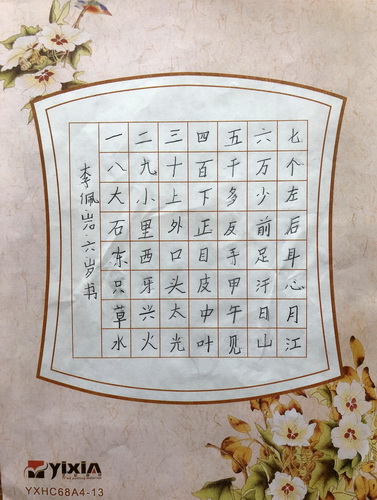 一二三四五六七
八九十百千万个
大小上下多少左
石里外正反前后
东西口目手足耳
只牙头皮甲汗心
草兴太中午日月
水火光叶见山江
李佩岩六岁书
YiXiN
YXHC68A4-13